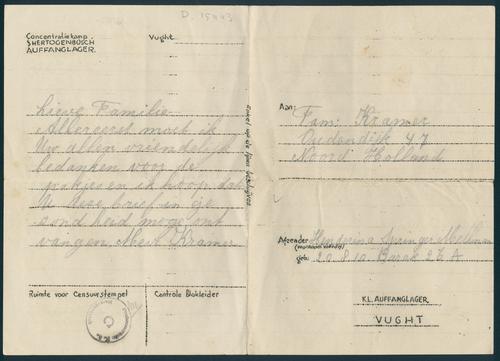 D. 15943
Concentratiekamp
SHERTOGENBOSCH
AUFFANGLAGER.
Vught:
Lieve Familie
Allereerst moet ik
U allen vriendelijk
bedanken voor de
pakjes en ik hoop dat
U deze brief in ge
zond heid moge ont
vangen Meví Kramer
Ruimte voor Censuurstempel
Centrole Blokleider
Enkel op de lijnen
Aan:
Fam: Kramer
Oudendijk 47
Noord Holland
Afzender
Henderina Springer
geb: 20.8.10. Barak 26 A
KL. AUFFANGLAGER
VUGHT